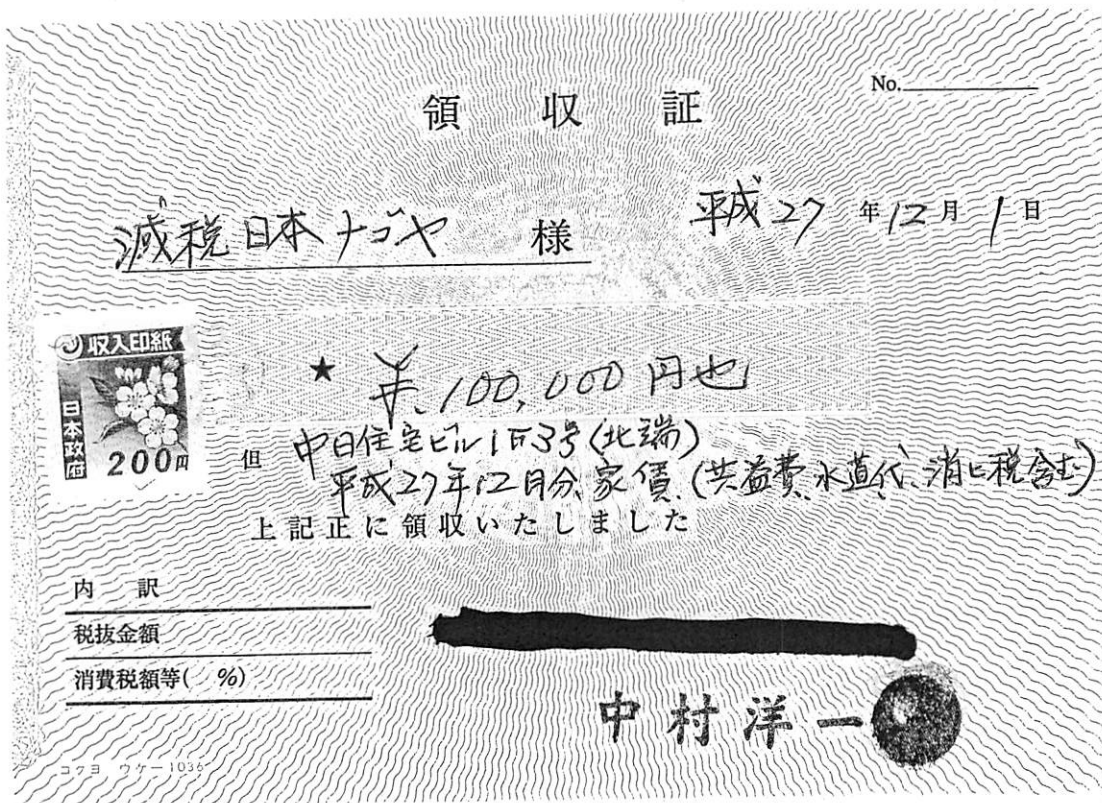 No.
領収証
減税日本ナゴヤ 様
平成27年12月1日
収入印紙
日本政府
200円
★ ¥.100,000円也
但 中日住宅ビル1F3号(北端)
平成27年12月分家賃(共益費、水道代、消ヒ税含む)
上記正に領収いたしました
内訳
税抜金額
消費税額等( %)
中村洋一
コクヨ ウケ-1036